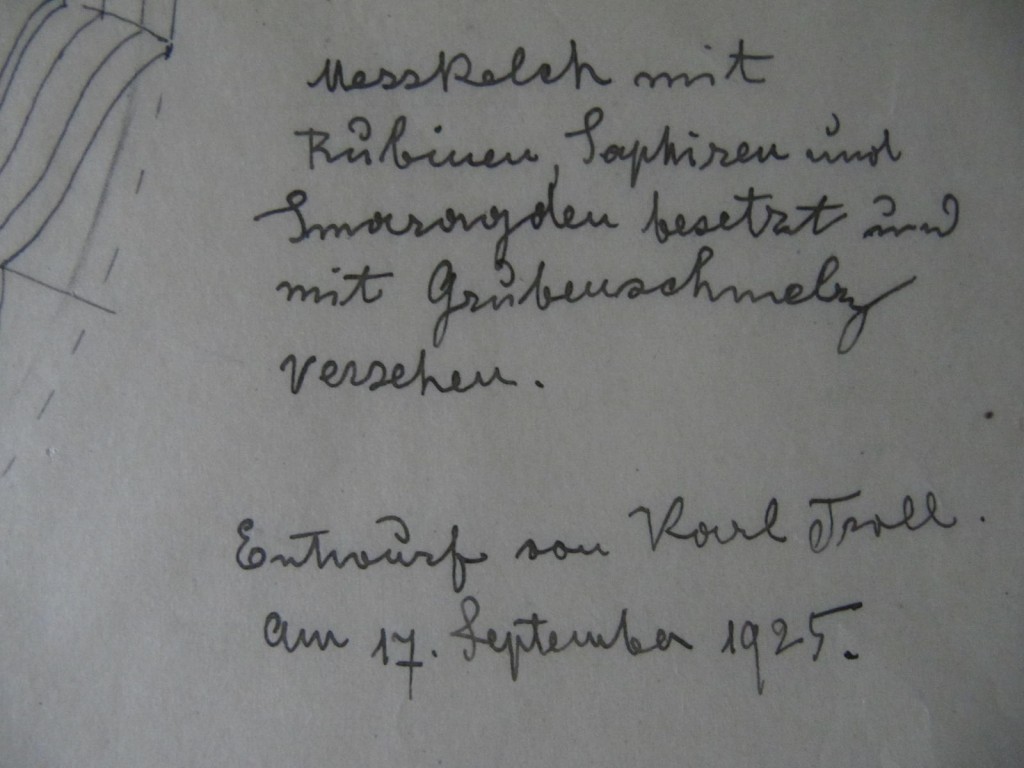 Messkelch mit
Rubinen, Saphiren und
Smaragden besetzt und
mit Grubenschmelz
versehen.
Entwurf von Karl Troll.
am 17. September 1925.